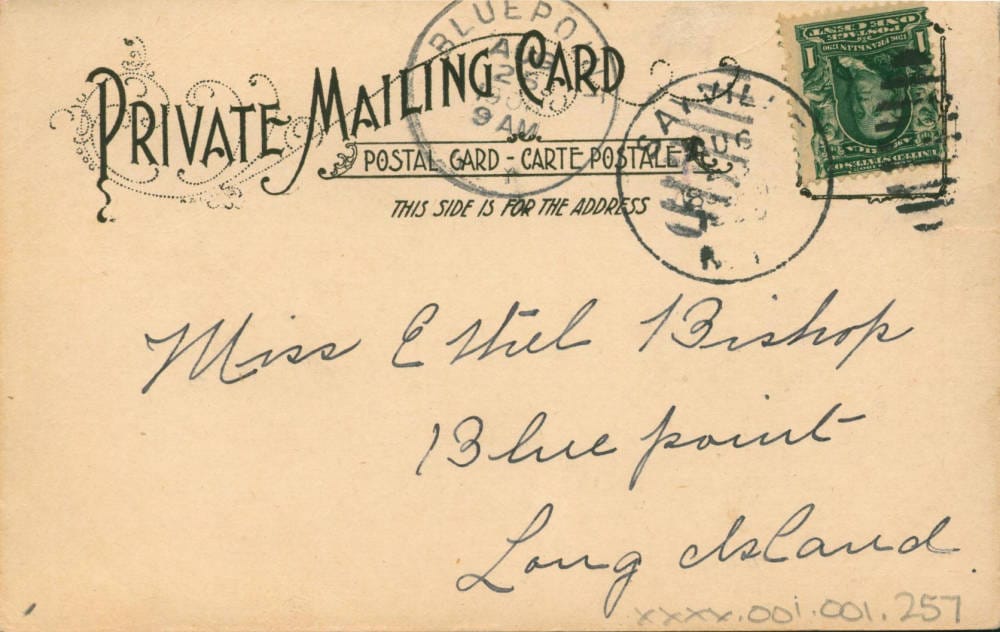 PRIVATE MAILING CARD
POSTAL CARD - CARTE POSTALE
THIS SIDE IS FOR THE ADDRESS
BLUEPO
9 AM
ONE CENT
POSTAGE
1 1
UNITED STATES
Miss Ethel Bishop
Bluepoint
Long Island
xxxx.001.001.257